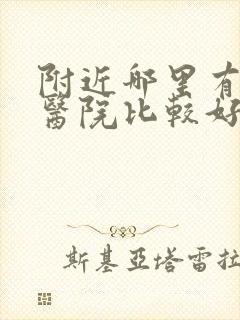 附近哪里有
醫院比較好
斯基亞塔雷拉